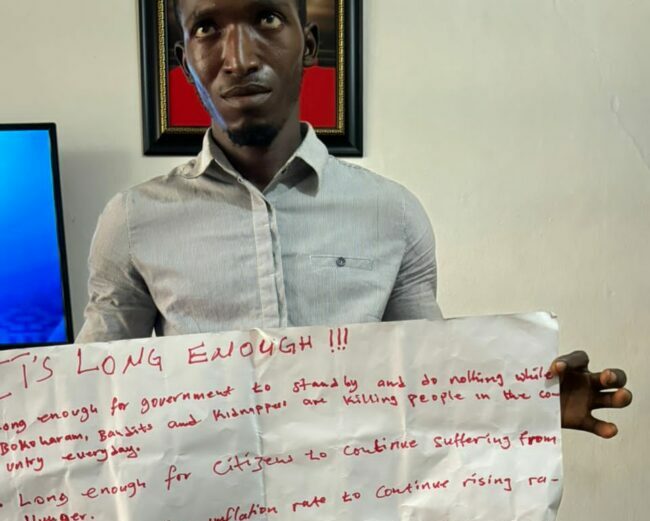 IT'S LONG ENOUGH!!!
Long enough for government to standby and do nothing while
Bokoharam, Bandits and Kidnappers are killing people in the co-
untry everyday.
Long enough for Citizens to continue suffering from
Hunger.
inflation rate to continue rising ra-